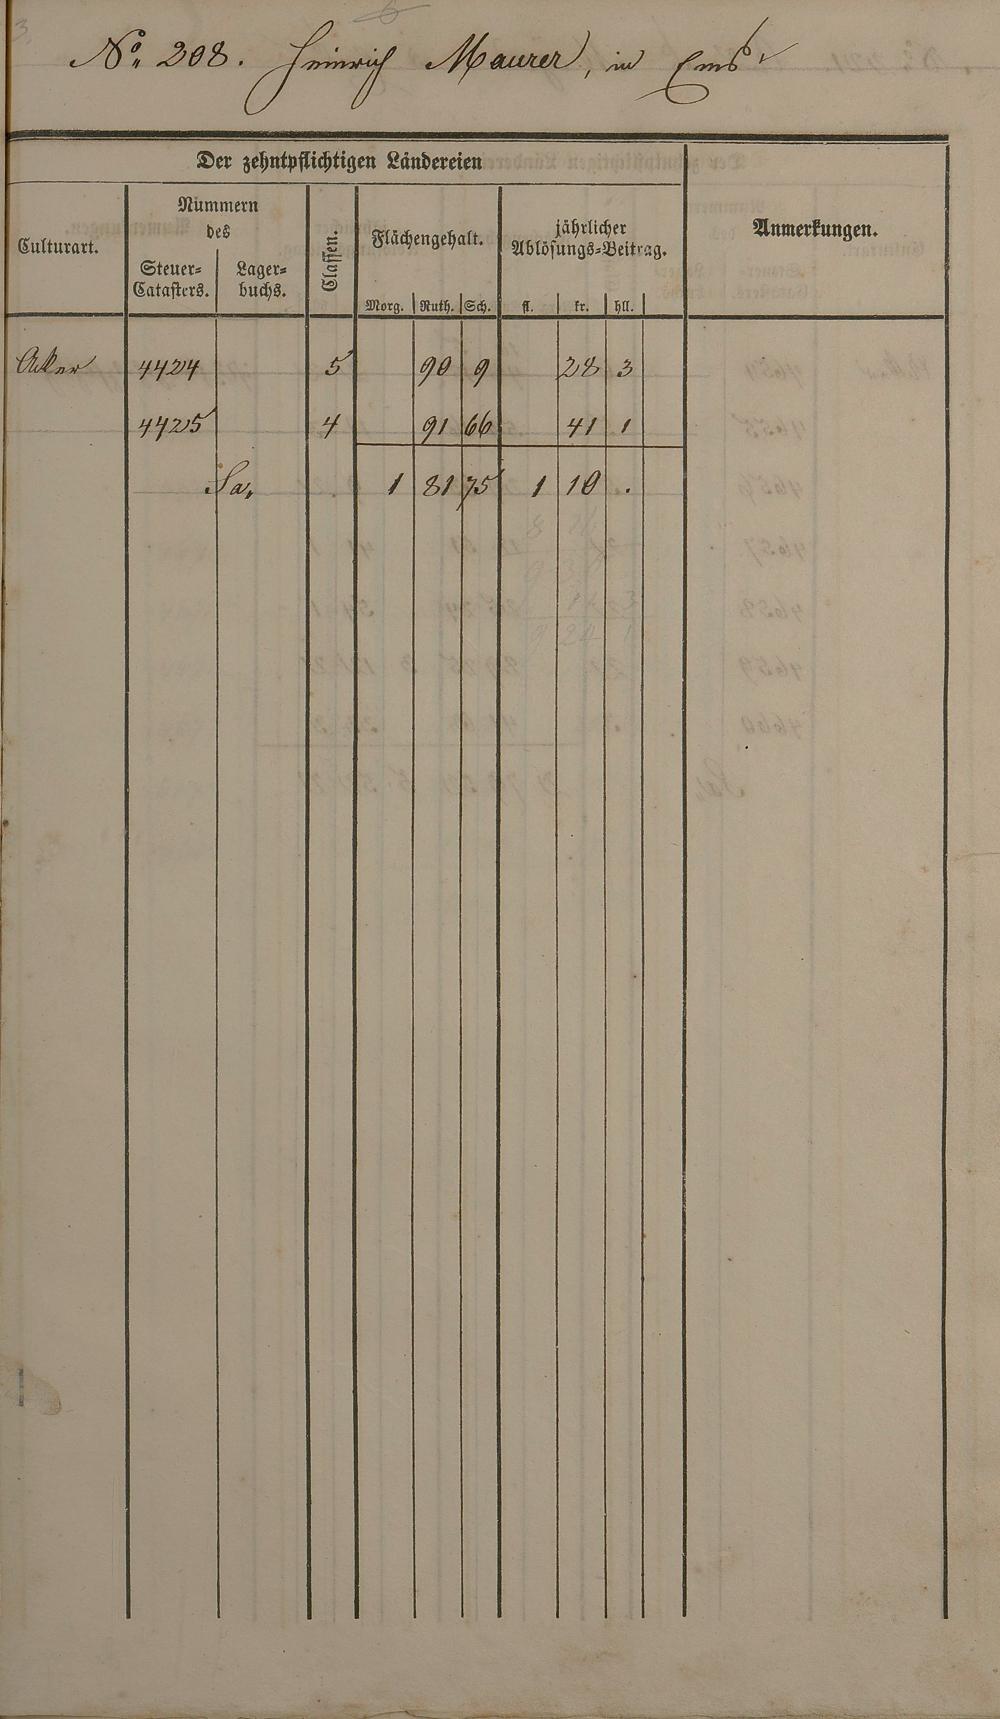 No. 208. Heinrich Maurer, in Ems.
Der zehntpflichtigen Ländereien
Culturart.
Nummern
des
Steuer-
Catasters.
Lager-
buchs.
Classen.
Flächengehalt.
Morg. Ruth. Sch.
jährlicher
Ablösungs-Beitrag.
fl. kr. hll.
Anmerkungen.
Acker 4424 5 90 9 28 3
4425 4 91 66 41 1
Sa. 1 81 75 1 10 .